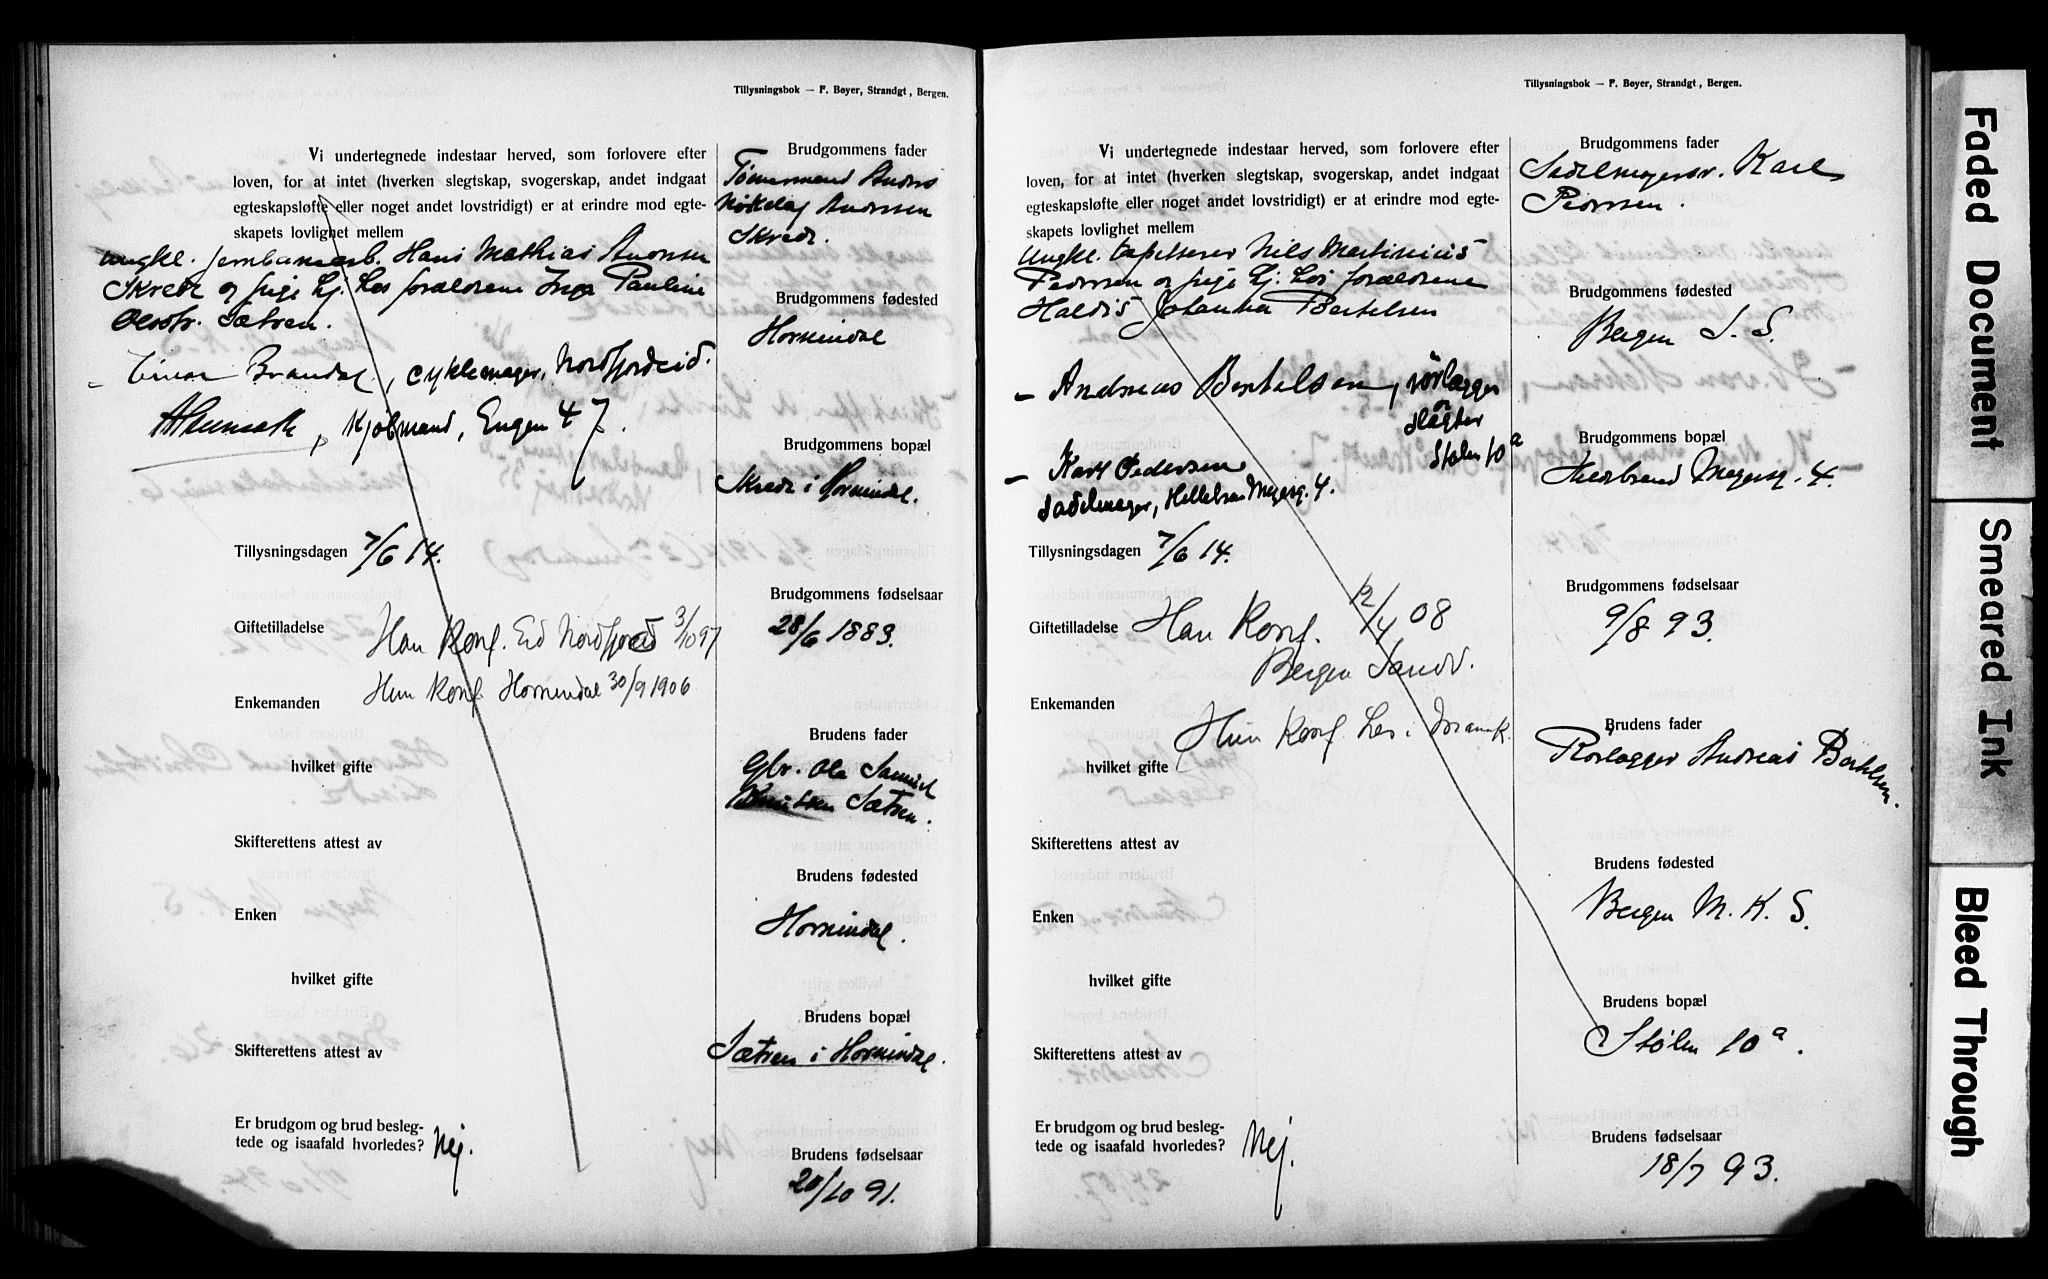 Tillysningsbok — F. Beyer, Strandgt, Bergen.
Vi undertegnede indestaar herved, som forlovere efter
loven, for at intet (hverken slegtskap, svogerskap, andet indgaat
egteskapsløfte eller noget andet lovstridigt) er at erindre mod egte-
skapets lovlighet mellem
ungkl. jernbanearb. Hans Mathias Andersen
Skrede og pige hj. hos forældrene Inga Pauline
Olsdtr. Sætren.
- Einar Brandal, cyklemager, Nordfjordeid.
Kjøbmand, Engen 47.
Tillysningsdagen 7/6 14.
Giftetilladelse Han Konf. Eid Nordfjord 3/10 97
Hun Konf. Hornindal 30/9 1906
Enkemanden
hvilket gifte
Skifterettens attest av
Enken
hvilket gifte
Skifterettens attest av
Er brudgom og brud besleg-
tede og isaafald hvorledes? Nej.
Brudgommens fader
Tømmermand Anders
Andersen
Skrede.
Brudgommens fødested
Hornindal
Brudgommens bopæl
Skrede i Hornindal.
Brudgommens fødselsaar
28/6 1883.
Brudens fader
Gbr. Ole Samuel
Knutsen Sætren.
Brudens fødested
Hornindal.
Brudens bopæl
Sætren i Hornindal.
Brudens fødselsaar
20/10 91.
Tillysningsbok — F. Beyer, Strandgt, Bergen.
Vi undertegnede indestaar herved, som forlovere efter
loven, for at intet (hverken slegtskap, svogerskap, andet indgaat
egteskapsløfte eller noget andet lovstridigt) er at erindre mod egte-
skapets lovlighet mellem
Ungkl. tapetserer Nils Martinius
Pedersen og pige hj. hos forældrene
Haldis Johanna Bertelsen
- Andreas Bertelsen, rörlægger
og
Slagter
Stølen 10a
- Karl Pedersen
Sadelmager, Hillebrandt Meyersg. 4.
Tillysningsdagen 7/6 14.
Giftetilladelse Han Konf. 12/4 08
Bergen Sandv.
Enkemanden
Hun Konf. hos i
hvilket gifte
Skifterettens attest av
Enken
hvilket gifte
Skifterettens attest av
Er brudgom og brud besleg-
tede og isaafald hvorledes? Nej.
Brudgommens fader
Sadelmagersv. Karl
Pedersen.
Brudgommens fødested
Bergen S. S.
Brudgommens bopæl
Hildebrand Meyersg. 4.
Brudgommens fødselsaar
9/8 93.
Brudens fader
Rørlægger Andreas Bertelsen.
Brudens fødested
Bergen M. K. S.
Brudens bopæl
Stølen 10a.
Brudens fødselsaar
18/7 93.
Faded Document
Smeared Ink
Bleed Through